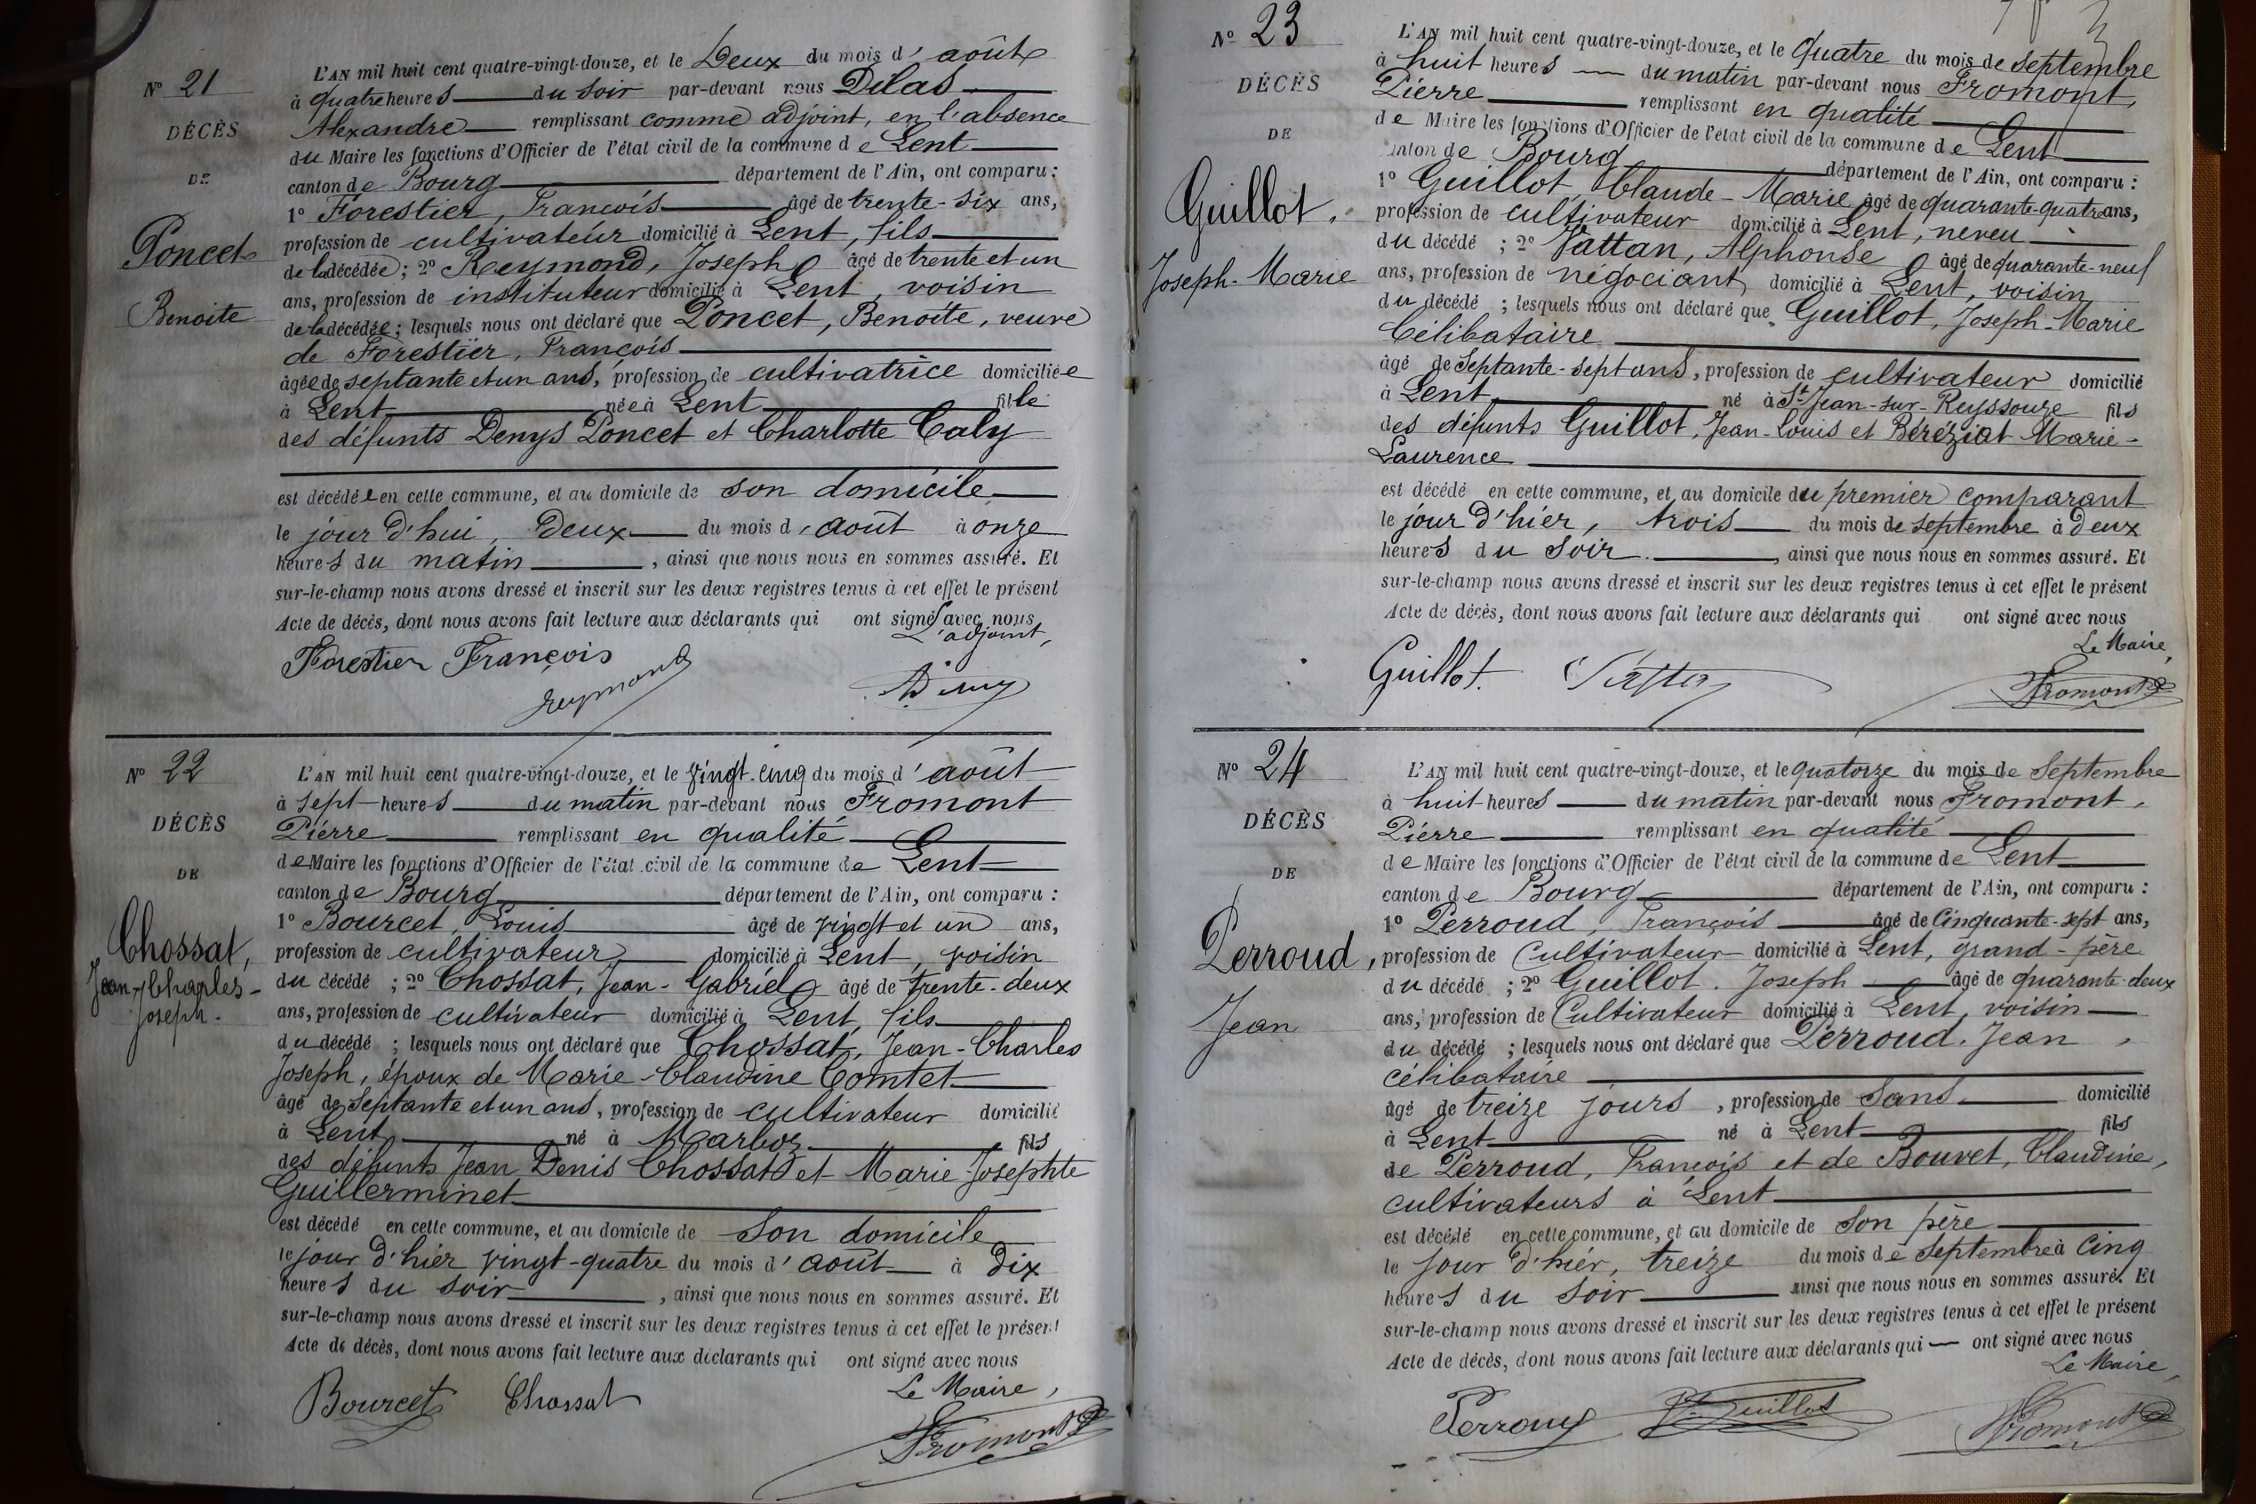 N° 21
DÉCÈS
DE
Poncet
Benoite
L'AN mil huit cent quatre-vingt-douze, et le Deux du mois d'août
à quatre heures du soir par-devant nous Dilas
Alexandre remplissant comme adjoint, en l'absence
du Maire les fonctions d'Officier de l'état civil de la commune de Lent
canton de Bourg département de l'Ain, ont comparu :
1° Forestier, François âgé de trente-six ans,
profession de cultivateur domicilié à Lent, fils
de la décédée ; 2° Reymond, Joseph âgé de trente et un
ans, profession de instituteur domicilié à Lent, voisin
de la décédée ; lesquels nous ont déclaré que Poncet, Benoite, veuve
de Forestier, François
âgée de septante et un ans, profession de cultivatrice domiciliée
à Lent née à Lent fille
des défunts Denys Poncet et Charlotte Caly
est décédée en cette commune, et au domicile de son domicile
le jour d'hui, deux du mois d'août à onze
heures du matin, ainsi que nous nous en sommes assuré. Et
sur-le-champ nous avons dressé et inscrit sur les deux registres tenus à cet effet le présent
Acte de décès, dont nous avons fait lecture aux déclarants qui ont signé avec nous
L'adjoint,
Forestier François
Reymond
N° 22
DÉCÈS
DE
Chossat,
Jean-Charles-
Joseph.
L'AN mil huit cent quatre-vingt-douze, et le vingt-cinq du mois d'août
à sept heures du matin par-devant nous Fromont
Pierre remplissant en qualité
de Maire les fonctions d'Officier de l'état civil de la commune de Lent
canton de Bourg département de l'Ain, ont comparu :
1° Bourcet, Louis âgé de vingt et un ans,
profession de cultivateur domicilié à Lent, voisin
du décédé ; 2° Chossat, Jean-Gabriel âgé de trente-deux
ans, profession de cultivateur domicilié à Lent, fils
du décédé ; lesquels nous ont déclaré que Chossat, Jean-Charles
Joseph, époux de Marie-Claudine Comtet
âgé de septante et un ans, profession de cultivateur domicilié
à Lent né à Marboz fils
des défunts Jean Denis Chossat et Marie Josephte
Guillerminet
est décédé en cette commune, et au domicile de son domicile
le jour d'hier vingt-quatre du mois d'août à dix
heures du soir, ainsi que nous nous en sommes assuré. Et
sur-le-champ nous avons dressé et inscrit sur les deux registres tenus à cet effet le présent
Acte de décès, dont nous avons fait lecture aux déclarants qui ont signé avec nous
Le Maire,
Bourcet Chossat
Fromont
N° 23
DÉCÈS
DE
Guillot,
Joseph-Marie
L'AN mil huit cent quatre-vingt-douze, et le quatre du mois de septembre
à huit heures du matin par-devant nous Fromont,
Pierre remplissant en qualité
de Maire les fonctions d'Officier de l'état civil de la commune de Lent
canton de Bourg département de l'Ain, ont comparu :
1° Guillot, Claude-Marie âgé de quarante-quatre ans,
profession de cultivateur domicilié à Lent, neveu
du décédé ; 2° Vattan, Alphonse âgé de quarante-neuf
ans, profession de négociant domicilié à Lent, voisin
du décédé ; lesquels nous ont déclaré que Guillot, Joseph-Marie
Célibataire
âgé de septante-sept ans, profession de cultivateur domicilié
à Lent né à St-Jean-sur-Reyssouze fils
des défunts Guillot, Jean-Louis et Béréziat Marie-
Laurence
est décédé en cette commune, et au domicile du premier comparant
le jour d'hier, trois du mois de septembre à deux
heures du soir., ainsi que nous nous en sommes assuré. Et
sur-le-champ nous avons dressé et inscrit sur les deux registres tenus à cet effet le présent
Acte de décès, dont nous avons fait lecture aux déclarants qui ont signé avec nous
Le Maire,
Guillot.
Fromont
N° 24
DÉCÈS
DE
Perroud,
Jean
L'AN mil huit cent quatre-vingt-douze, et le quatorze du mois de Septembre
à huit heures du matin par-devant nous Fromont,
Pierre remplissant en qualité
de Maire les fonctions d'Officier de l'état civil de la commune de Lent
canton de Bourg département de l'Ain, ont comparu :
1° Perroud, François âgé de Cinquante-sept ans,
profession de Cultivateur domicilié à Lent, grand-père
du décédé ; 2° Guillot. Joseph âgé de quarante-deux
ans, profession de Cultivateur domicilié à Lent, voisin
du décédé ; lesquels nous ont déclaré que Perroud, Jean,
célibataire
âgé de treize jours, profession de Sans domicilié
à Lent né à Lent fils
de Perroud, François et de Bouvet, Claudine,
cultivateurs à Lent
est décédé en cette commune, et au domicile de son père
le jour d'hier, treize du mois de Septembre à Cinq
heures du soir ainsi que nous nous en sommes assuré. Et
sur-le-champ nous avons dressé et inscrit sur les deux registres tenus à cet effet le présent
Acte de décès, dont nous avons fait lecture aux déclarants qui ont signé avec nous
Le Maire,
Perroud Guillot
Fromont